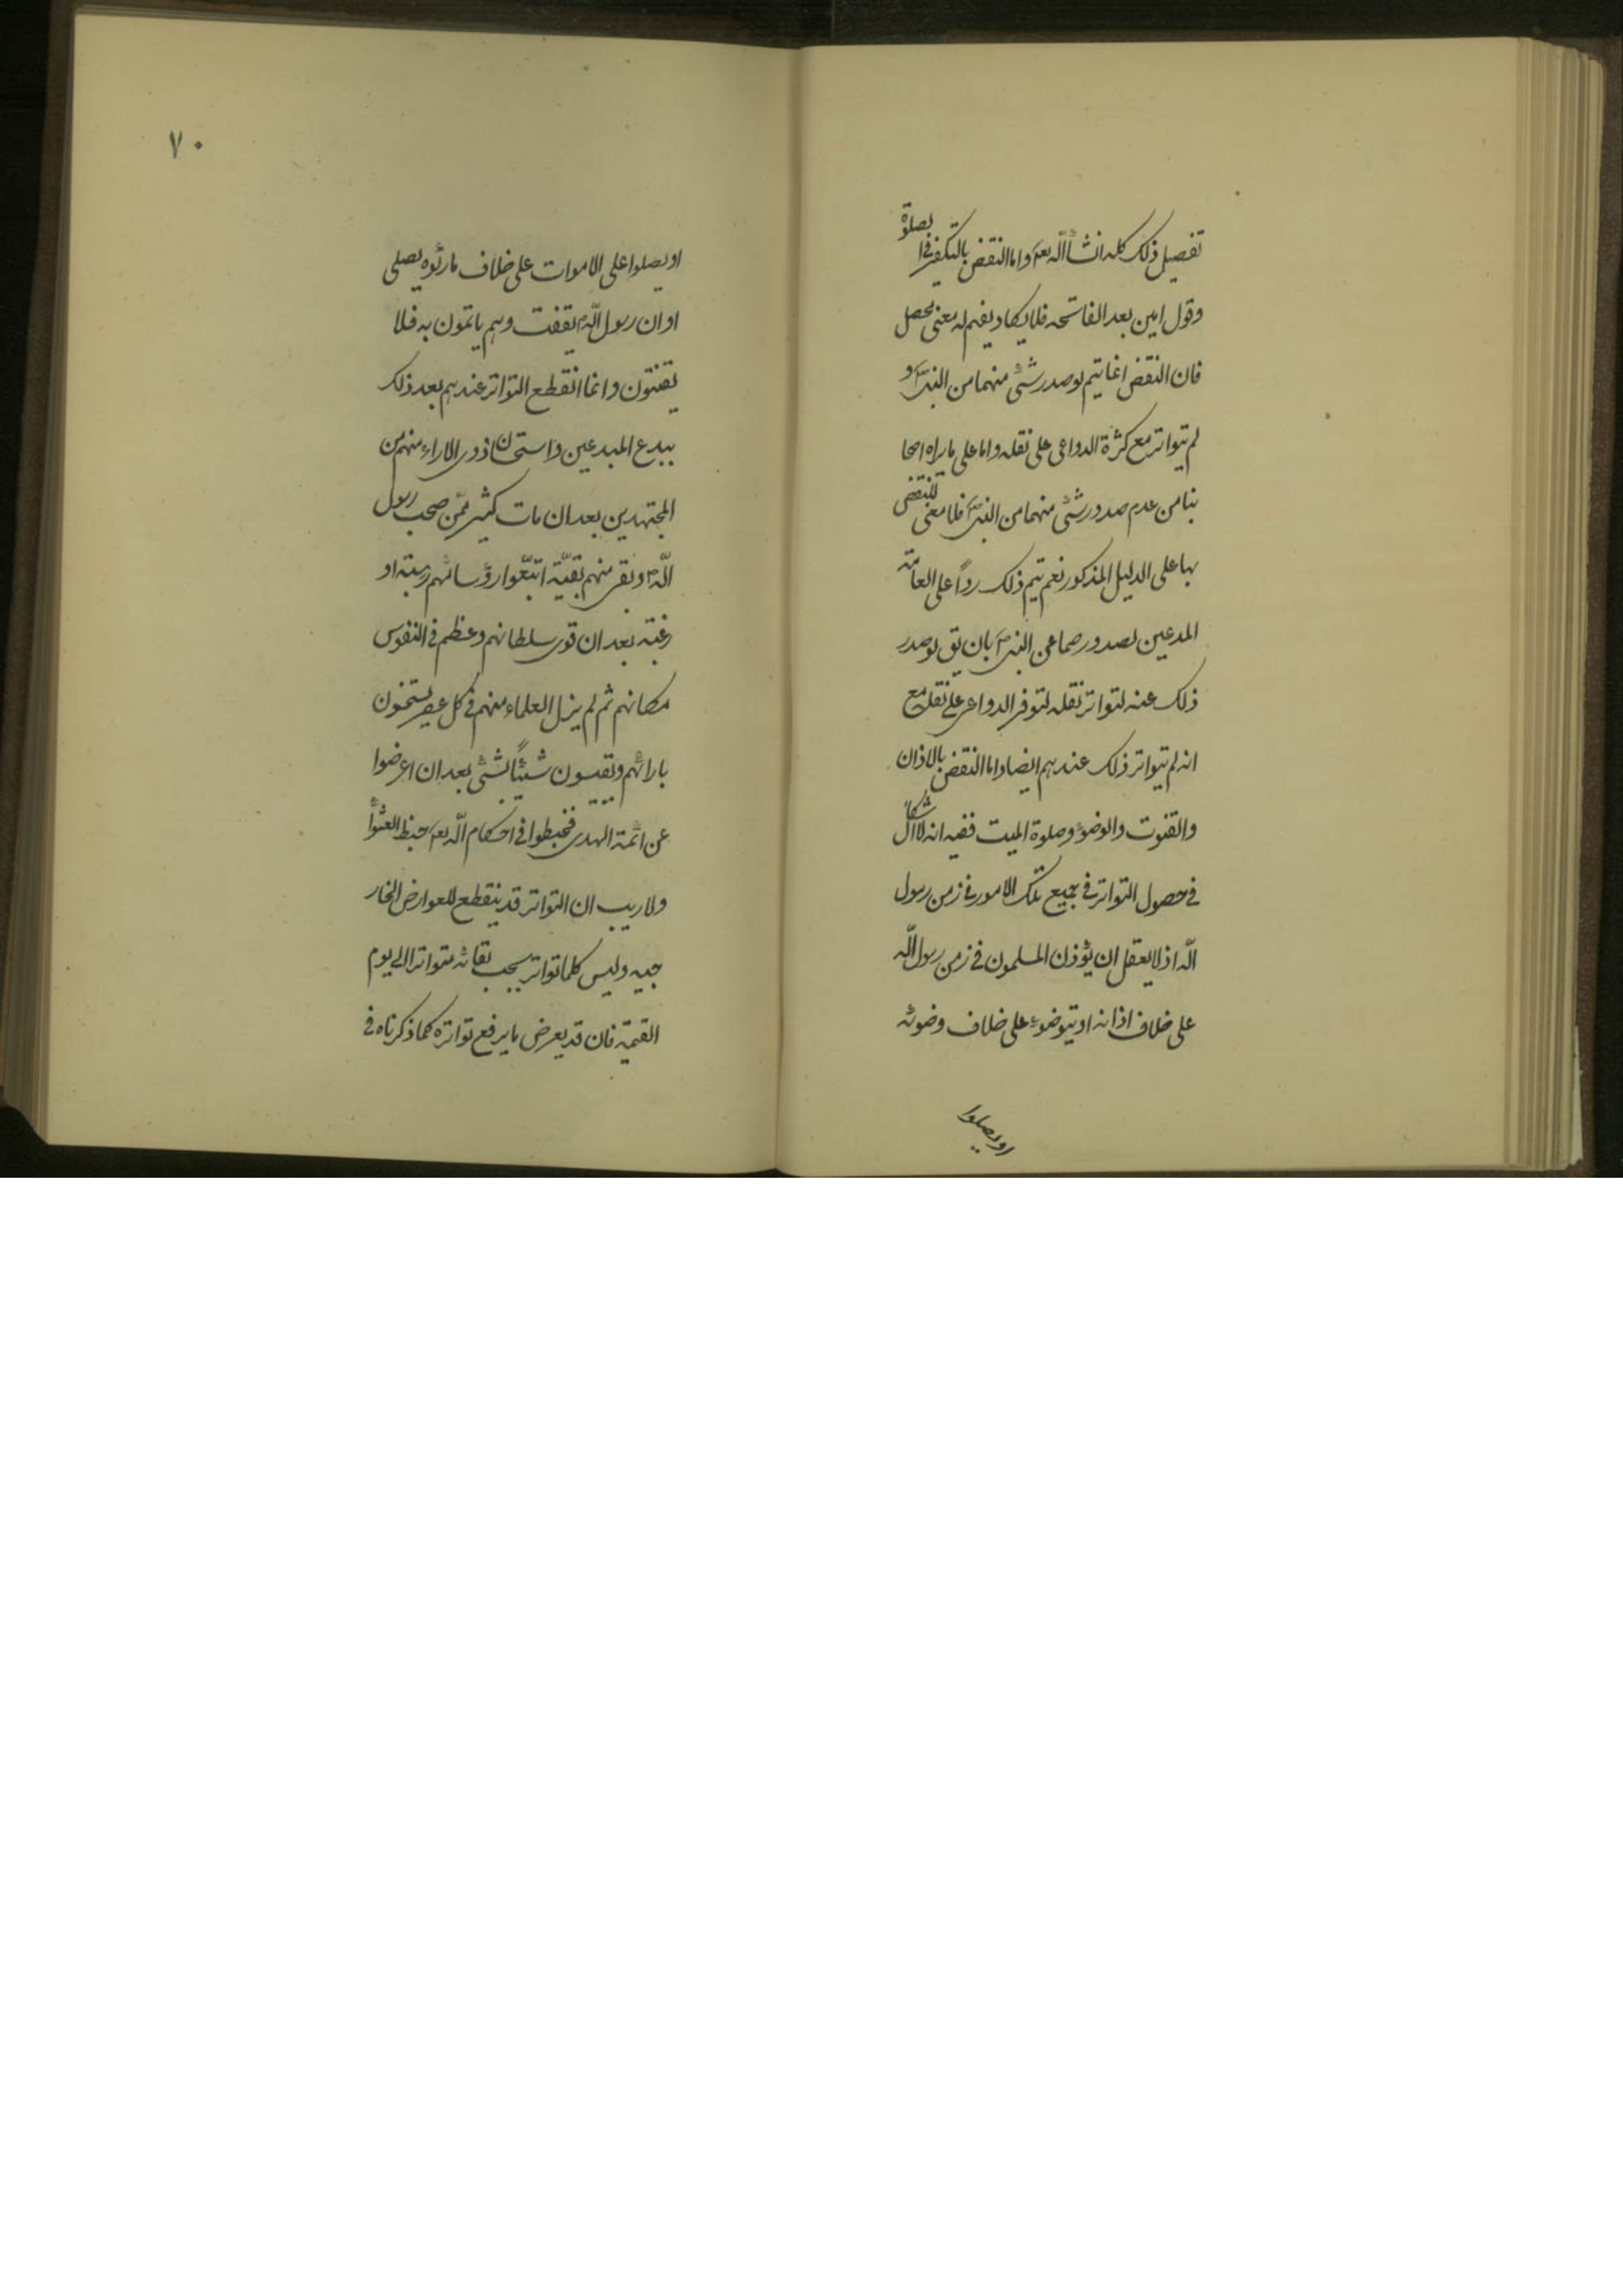 تفصيل ذلك كله انشأ الله تعه واما النقض بالتكفير في الصلوة
وقول امين بعد الفاتحه فلا يكاد يفهم له معنى يحصل
فان النقض انما يتم لو صدر شئ منهما من النبي ص و
لم يتواتر مع كثرة الدواعى على نقله واما على ما يراه اصحا
بنا من عدم صدور شئ منهما من النبي ص فلا معنى للنقض
بها على الدليل المذكور نعم يتم ذلك رداً على العامة
المدعين لصدورهما عن النبي ص بان يق لو صدر
ذلك عنه لتواتر نقله لتوفر الدواعى على نقله مع
انه لم يتواتر ذلك عندهم ايضا واما النقض بالاذان
والقنوت والوضوء وصلوة الميت ففيه انه لا اشكال
في حصول التواتر في جميع تلك الامور في زمن رسول
الله اذ لا يعقل ان يؤذن المسلمون في زمن رسول الله
على خلاف اذانه او يتوضوء على خلاف وضوئه
او يصلوا
٧٠
او يصلوا على الاموات على خلاف ما رئوه يصلى
او ان رسول الله ص يقنت وهم ياتمون به فلا
يقنتون وانما انقطع التواتر عندهم بعد ذلك
ببدع المبدعين واستحسان ذوى الاراء منهم من
المجتهدين بعد ان مات كثير ممن صحب رسول
الله ص وبقى منهم بقيّة اتبعوا رؤسائهم رهبة او
رغبة بعد ان قوى سلطانهم وعظم في النفوس
مكانهم ثم لم يزل العلماء منهم في كل عصر يستحسنون
بارائهم ويقيسون شيئاً بشئ بعد ان اعرضوا
عن ائمة الهدى فخبطوا في احكام الله تعه خبط العشواء
ولا ريب ان التواتر قد ينقطع للعوارض الخار
جيه وليس كلما تواتر يجب بقائه متواترا الى يوم
القيمة فان قد يعرض ما يرفع تواتره كما ذكرناه في